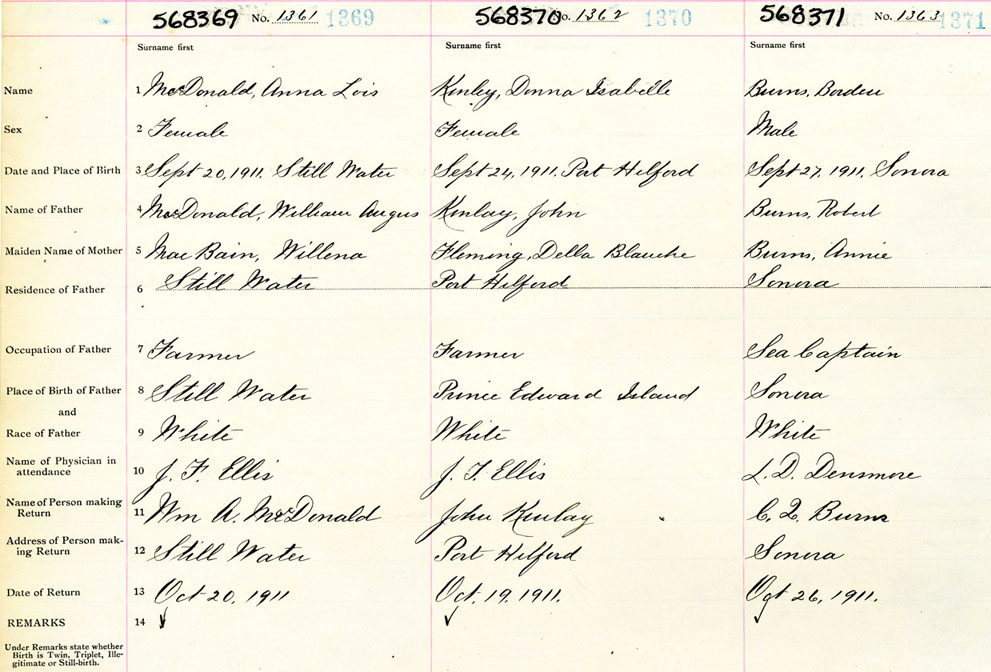 568369 No. 1361 1369 568370 No. 1362 1370 568371 No. 1363 1371
Surname first Surname first Surname first
Name 1 McDonald, Anna Lois Kinley, Donna Isabelle Burns, Borden
Sex 2 Female Female Male
Date and Place of Birth 3 Sept 20, 1911. Still Water Sept 24, 1911. Port Hilford Sept 27, 1911. Sonora
Name of Father 4 McDonald, William Angus Kinlay, John Burns, Robert
Maiden Name of Mother 5 Mac Bain, Willena Fleming, Della Blanche Burns, Annie
Residence of Father 6 Still Water Port Hilford Sonora
Occupation of Father 7 Farmer Farmer Sea Captain
Place of Birth of Father 8 Still Water Prince Edward Island Sonora
and
Race of Father 9 White White White
Name of Physician in
attendance 10 J. F. Ellis J. F. Ellis L. D. Densmore
Name of Person making
Return 11 Wm A. McDonald John Kinlay C. Q. Burns
Address of Person mak-
ing Return 12 Still Water Port Hilford Sonora
Date of Return 13 Oct 20, 1911 Oct. 19, 1911. Oct 26, 1911.
REMARKS 14
Under Remarks state whether
Birth is Twin, Triplet, Ille-
gitimate or Still-birth.